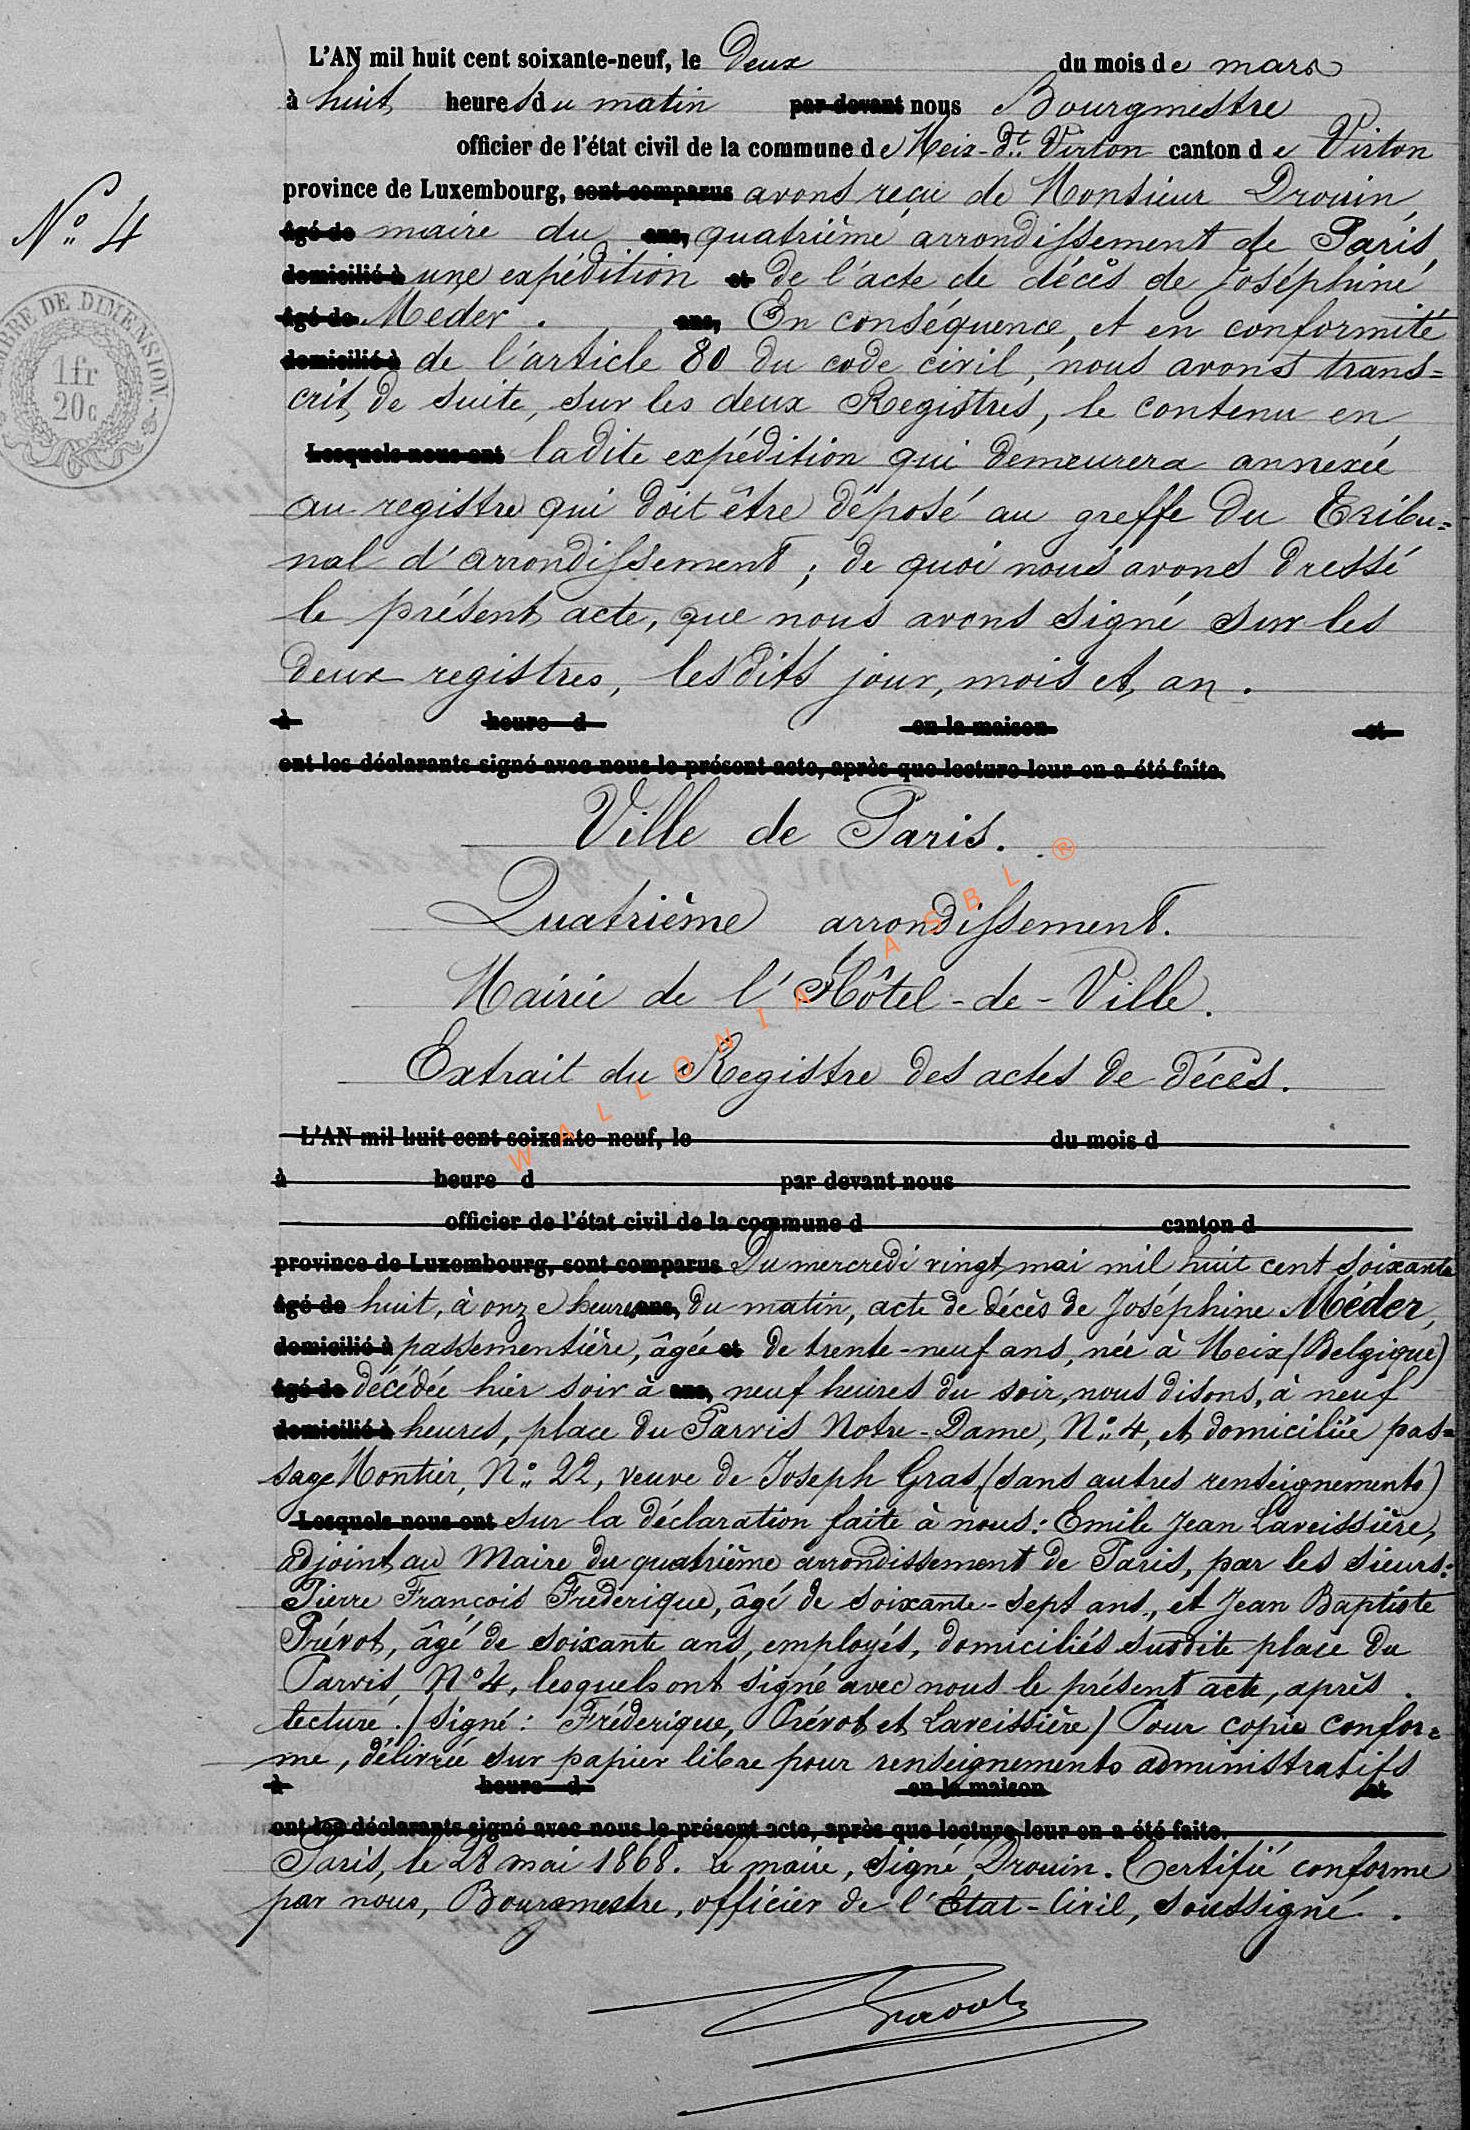 L'AN mil huit cent soixante-neuf, le Deux du mois de mars
à huit heures du matin par devant nous Bourgmestre
officier de l'état civil de la commune de Meix-dt. Virton canton de Virton
province de Luxembourg, sont comparus avons reçu de Monsieur Drouin,
N° 4
âgé de maire du ans, quatrième arrondissement de Paris,
domicilié à une expédition et de l'acte de décès de Joséphine
âgé de Meder. ans, En conséquence, et en conformité
domicilié à de l'article 80 du code civil, nous avons trans=
crit, de suite, sur les deux Registres, le contenu en
TIMBRE DE DIMENSION.
1 fr
20 c
Lesquels nous ont ladite expédition qui demeurera annexée
au registre qui doit être déposé au greffe du Tribu=
nal d'arrondissement; de quoi nous avons dressé
le présent acte, que nous avons signé sur les
deux registres, lesdits jour, mois et an.
à heure d en la maison et
ont les déclarants signé avec nous le présent acte, après que lecture leur en a été faite.
Ville de Paris.
Quatrième arrondissement.
Mairie de l'Hôtel-de-Ville.
Extrait du Registre des actes de décès.
WALLONIA ASBL ®
L'AN mil huit cent soixante-neuf, le du mois d
à heure d par devant nous
officier de l'état civil de la commune d canton d
province de Luxembourg, sont comparus Du mercredi vingt mai mil huit cent soixante
âgé de huit, à onze heures ans, du matin, acte de décès de Joséphine Méder,
domicilié à passementière, âgée et de trente-neuf ans, née à Meix (Belgique)
âgé de décédée hier soir à ans, neuf heures du soir, nous disons, à neuf
domicilié à heures, place du Parvis Notre-Dame, N° 4, et domiciliée pas=
sage Montier, N° 22, veuve de Joseph Gras, (sans autres renseignements)
Lesquels nous ont sur la déclaration faite à nous: Emile Jean Laveissière,
adjoint au Maire du quatrième arrondissement de Paris, par les sieurs:
Pierre François Frederique, âgé de soixante-sept ans, et Jean Baptiste
Prévot, âgé de soixante ans, employés, domiciliés susdite place du
Parvis, N° 4, lesquels ont signé avec nous le présent acte, après
lecture. (signé: Fréderique, Prévot et Laveissière) Pour copie confor=
me, délivrée sur papier libre pour renseignements administratifs
à heure d en la maison et
ont les déclarants signé avec nous le présent acte, après que lecture leur en a été faite.
Paris, le 28 mai 1868. Le maire, signé Drouin. Certifié conforme
par nous, Bourgmestre, officier de l'Etat-Civil, soussigné.